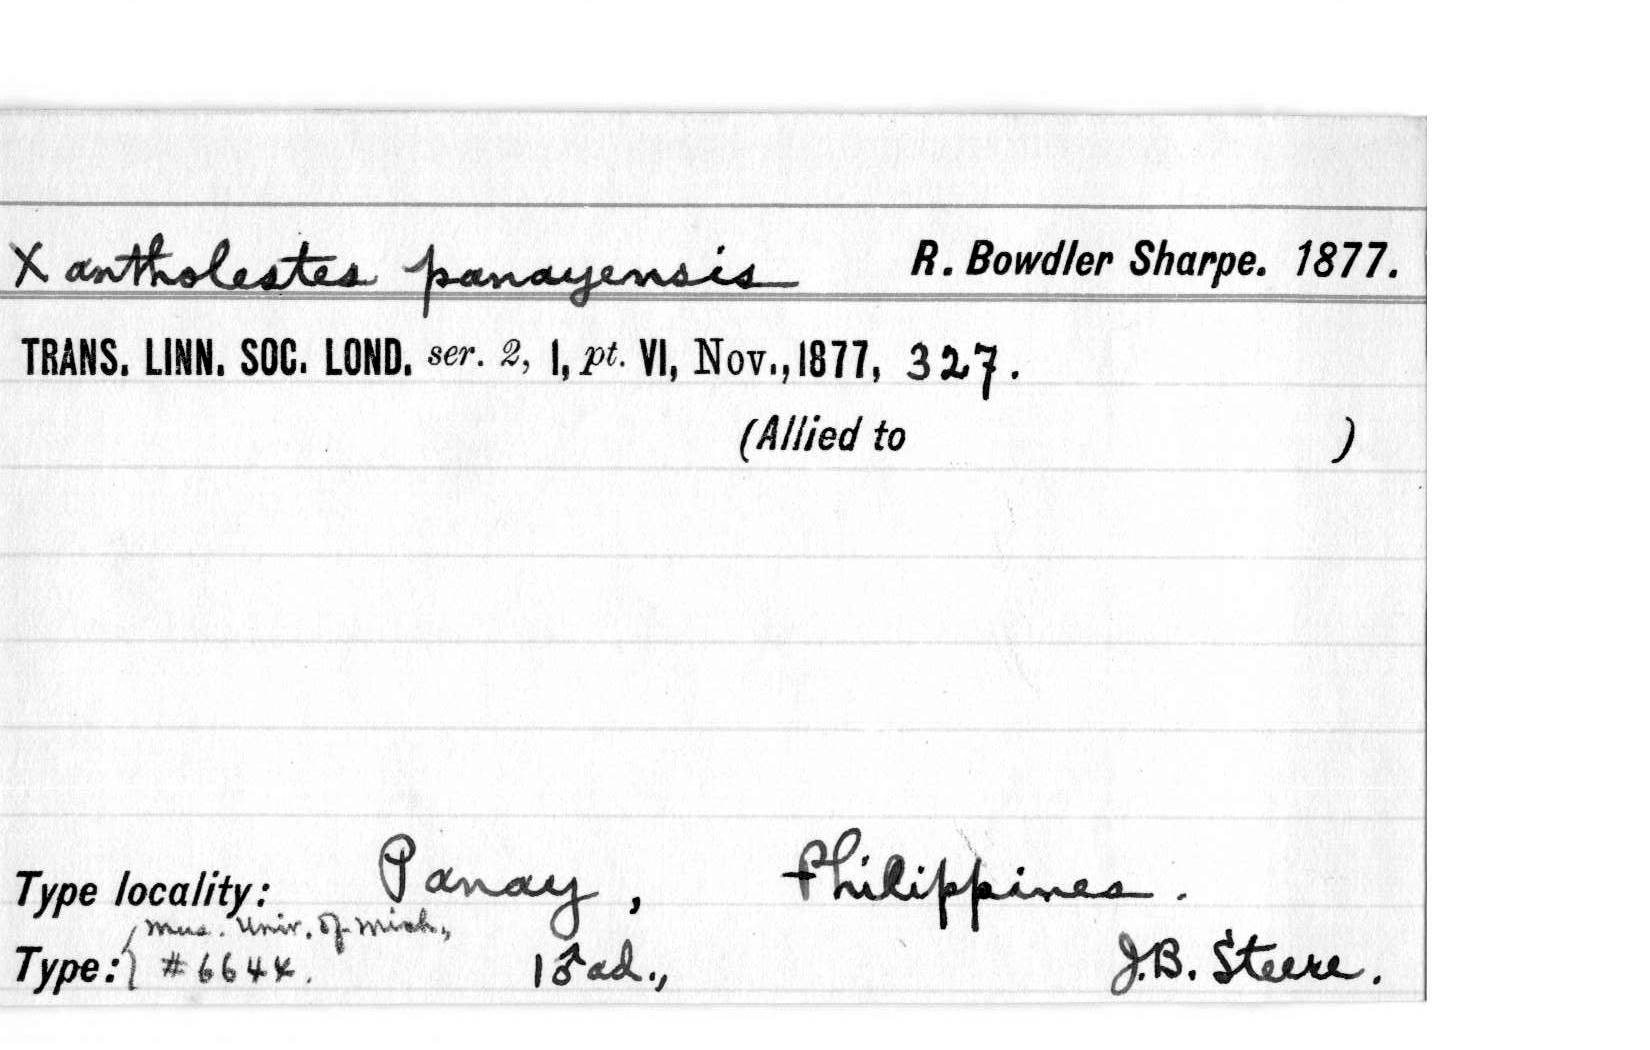 Xantholestes panayensis R. Bowdler Sharpe. 1877.
TRANS. LINN. SOC. LOND. ser. 2, I, pt. VI, Nov., 1877, 327.
(Allied to )
Type locality: Panay, Philippines.
Mus. Univ. of Mich.,
Type: { #6644. 1♂ad., J.B. Steere.